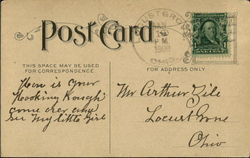 Post Card
THIS SPACE MAY BE USED
FOR CORRESPONDENCE
FOR ADDRESS ONLY
How is your
Hooking Rough
come over and
see My little Girl
Mr Arthur
Locust Grove
Ohio